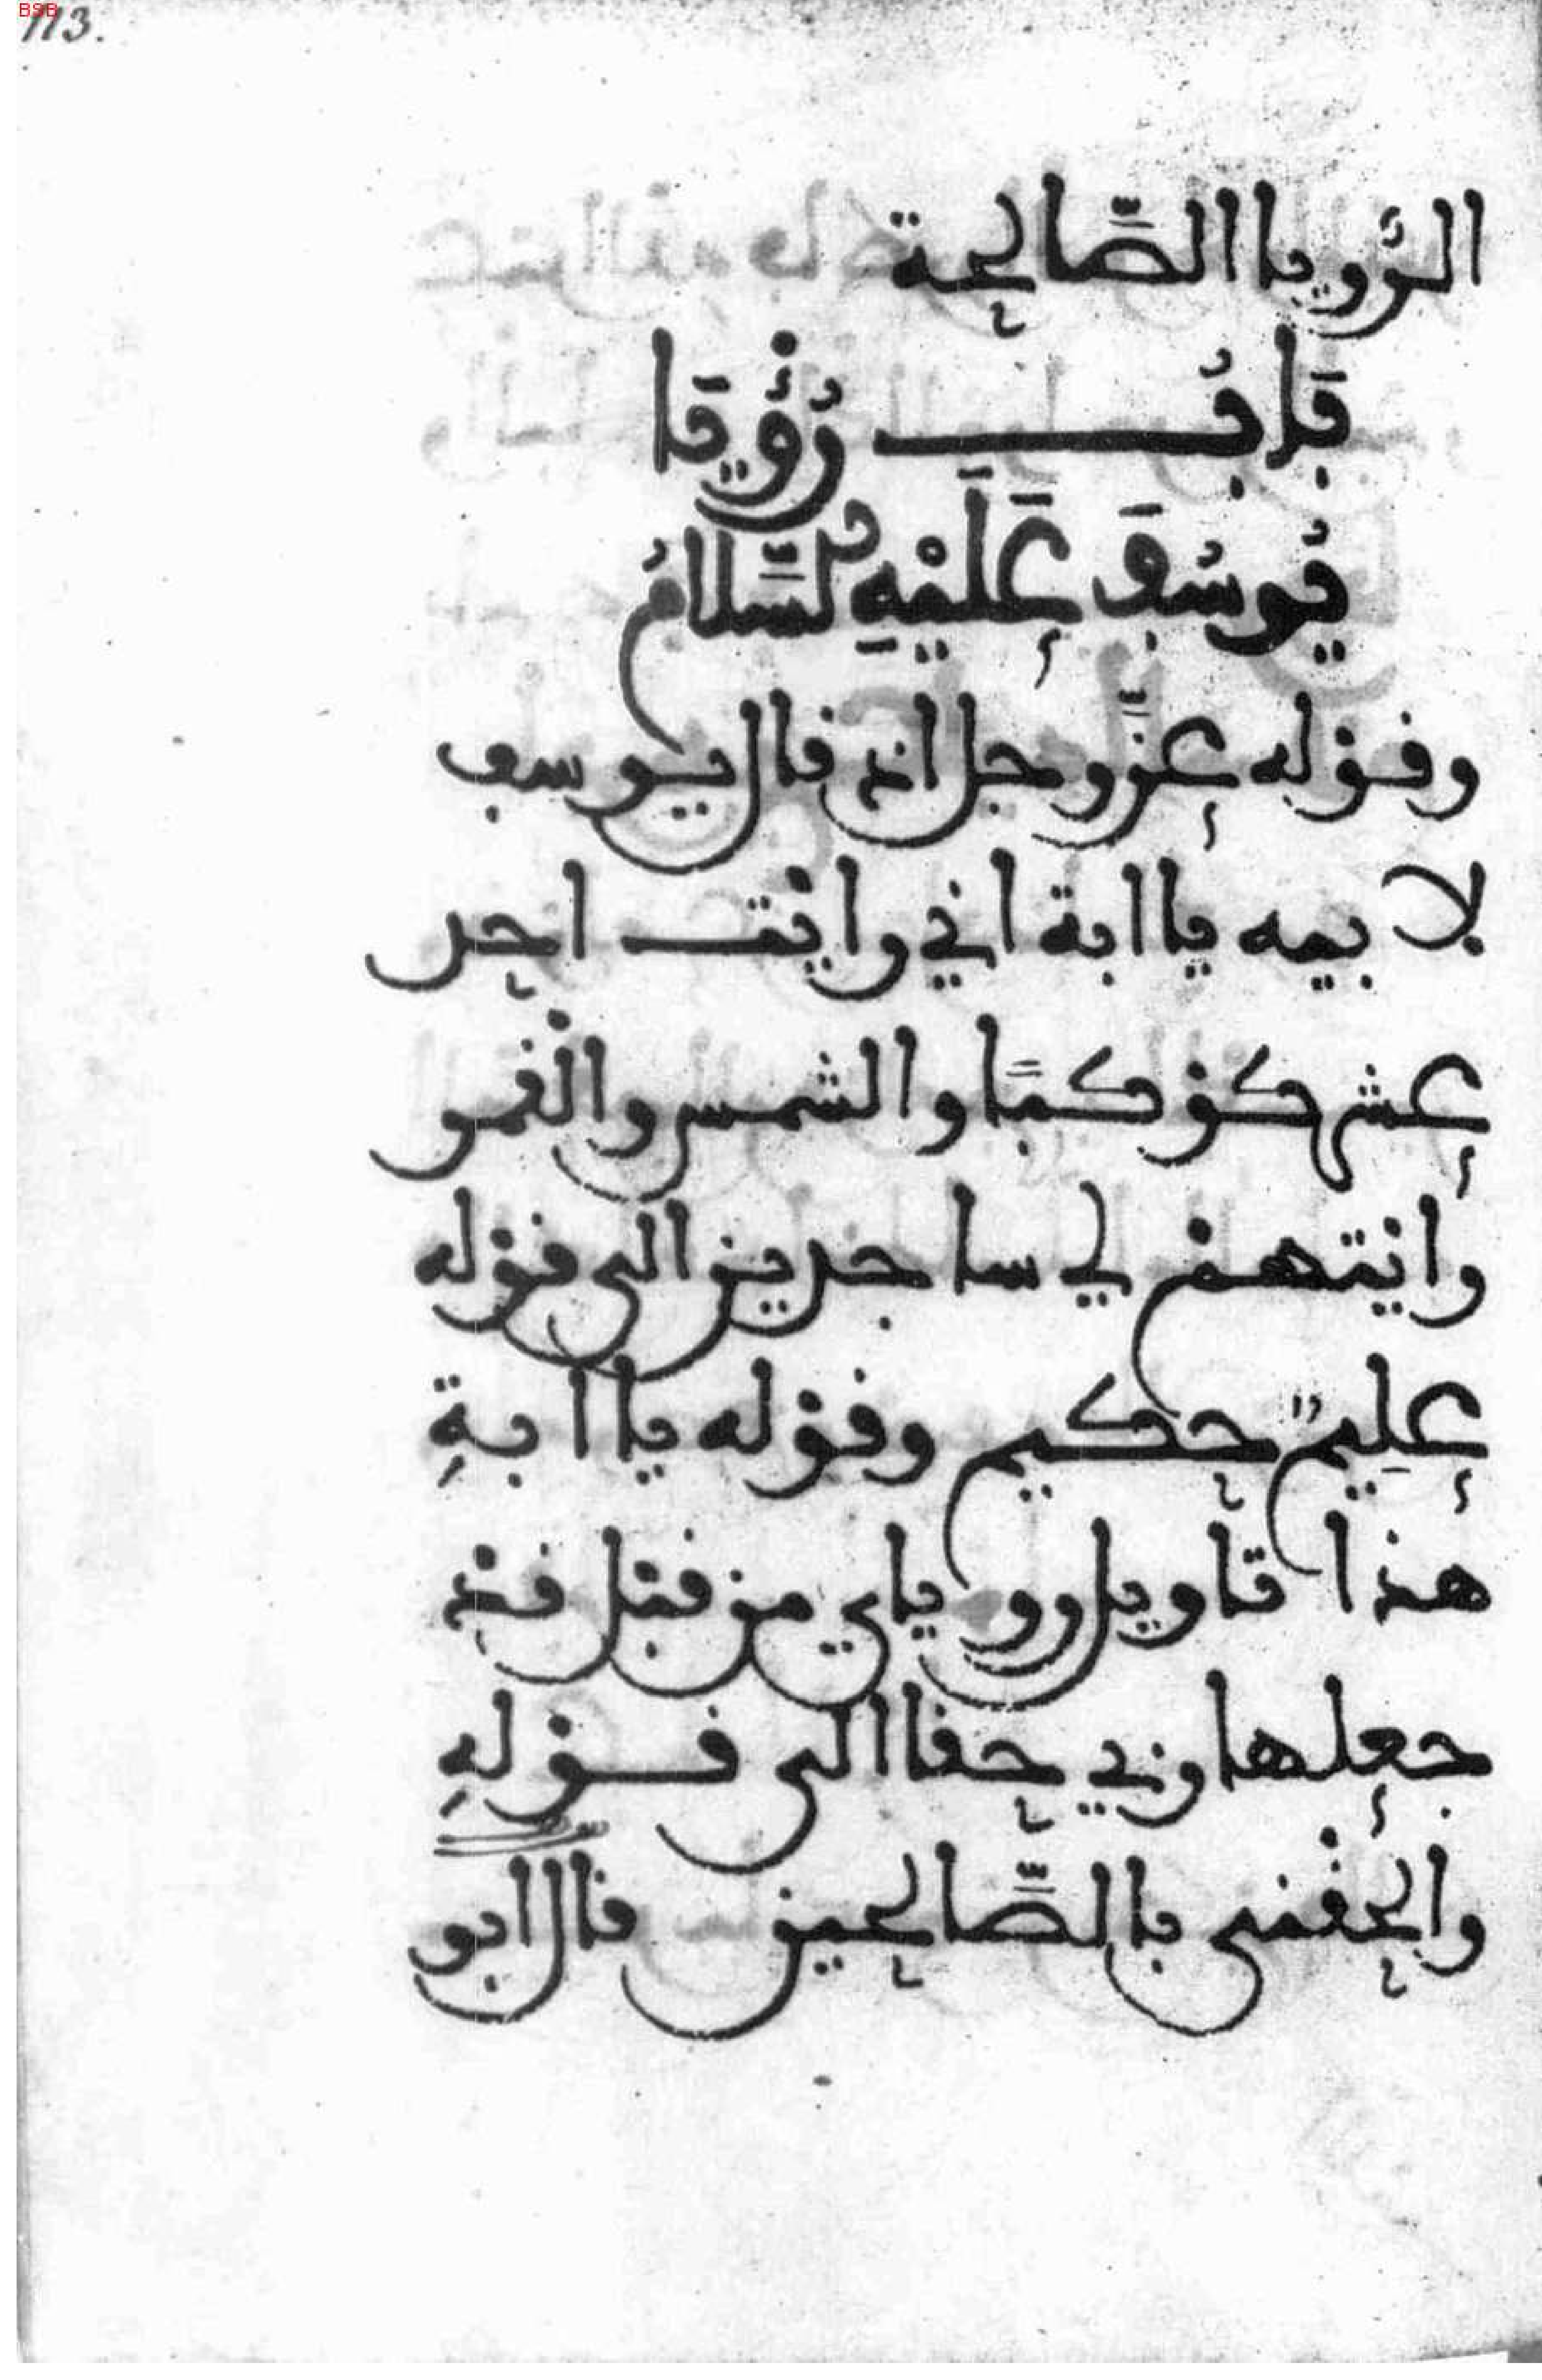 113.
BSB
الرويا الصّالحة
بَابُ رُؤْيَا
يُوسُفَ عَلَيْهِ السَّلَامُ
وقوله عزّ وجل اذ قال يوسف
لابيه يا ابة اني رايت احد
عشر كوكبًا والشمس والقمر
رايتهم لي ساجدين الى قوله
عليمٌ حكيم وقوله يا ابةِ
هذا تاويل روياي من قبل قد
جعلها ربي حقا الى قولهِ
والحقني بالصّالحين قال ابو